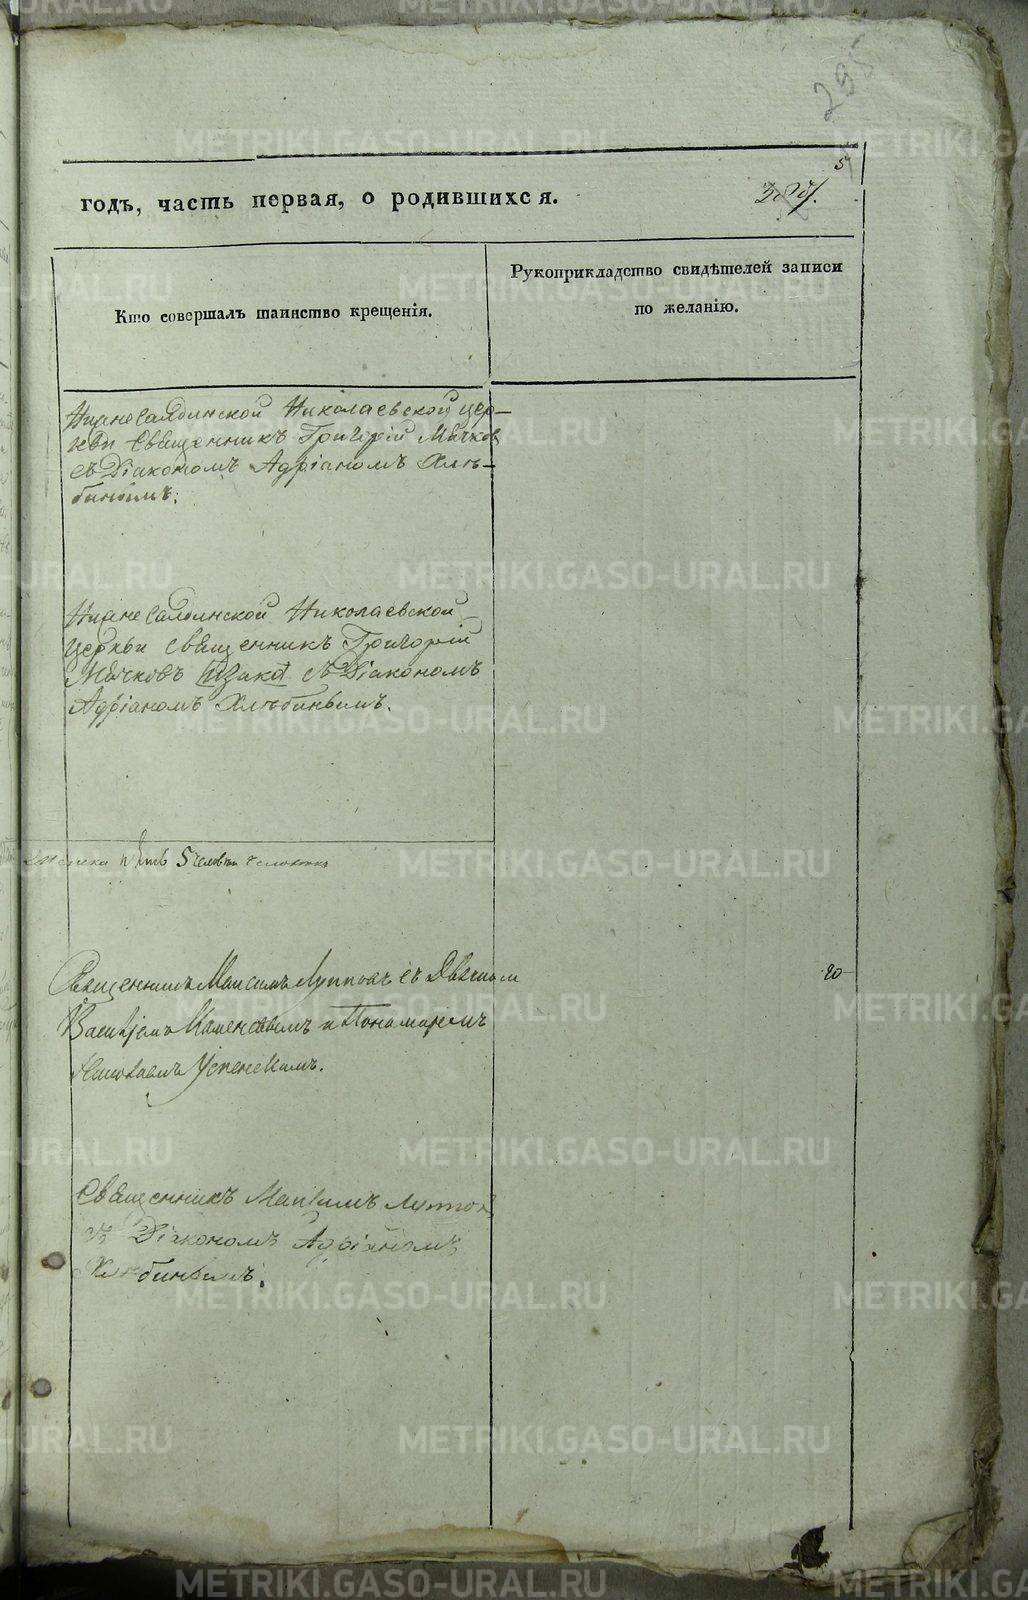 295
5
годъ, часть первая, о родившихся.
Кто совершалъ таинство крещенія.
Рукоприкладство свидѣтелей записи
по желанію.
Нижнесалдинской Николаевской цер-
кви Священникъ Григорій Мячков
съ Діакономъ Адріаномъ Хлѣ-
бинымъ.
Нижнесалдинской Николаевской
церкви священникъ Григорій
Мячковъ съ Діакономъ
Адріаномъ Хлѣбинымъ.
пять 5 человѣкъ
Священникъ Максимъ Лупповъ съ Дьячком
Василіемъ и Пономаремъ
Николаемъ Успенскимъ.
20
Священникъ Максимъ Луппов
съ Діакономъ Адріаномъ
Хлѣбинымъ.
METRIKI.GASO-URAL.RU